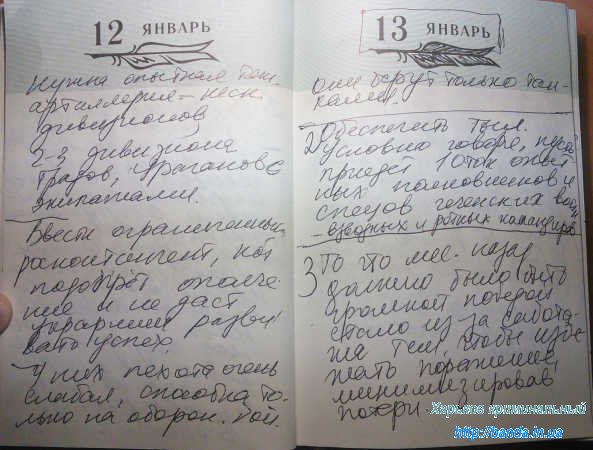 12 ЯНВАРЬ
Нужна опытная
артиллерия - неск
дивизионов
2-3 дивизиона
Градов, Ураганов с
экипажами.
Ввести ограниченный
ополче
ние и не даст
укрармии разви
вать успех.
У них пехота очень
слабая, способна то
лько на оборон. бой.
13 ЯНВАРЬ
они берут только тан-
ками.
2) Обеспечить тыл.
условно говоря, пусть
приедет опыт
ных полковников и
спецов чеченских войн
взводных и ротных командиров
3 То что мес. назад
должно было быть
громкой победой
стало из за сабота-
жа тем, чтобы избе-
жать поражение,
минимизировав
потери
Харьков криминальный
http://banda.in.ua